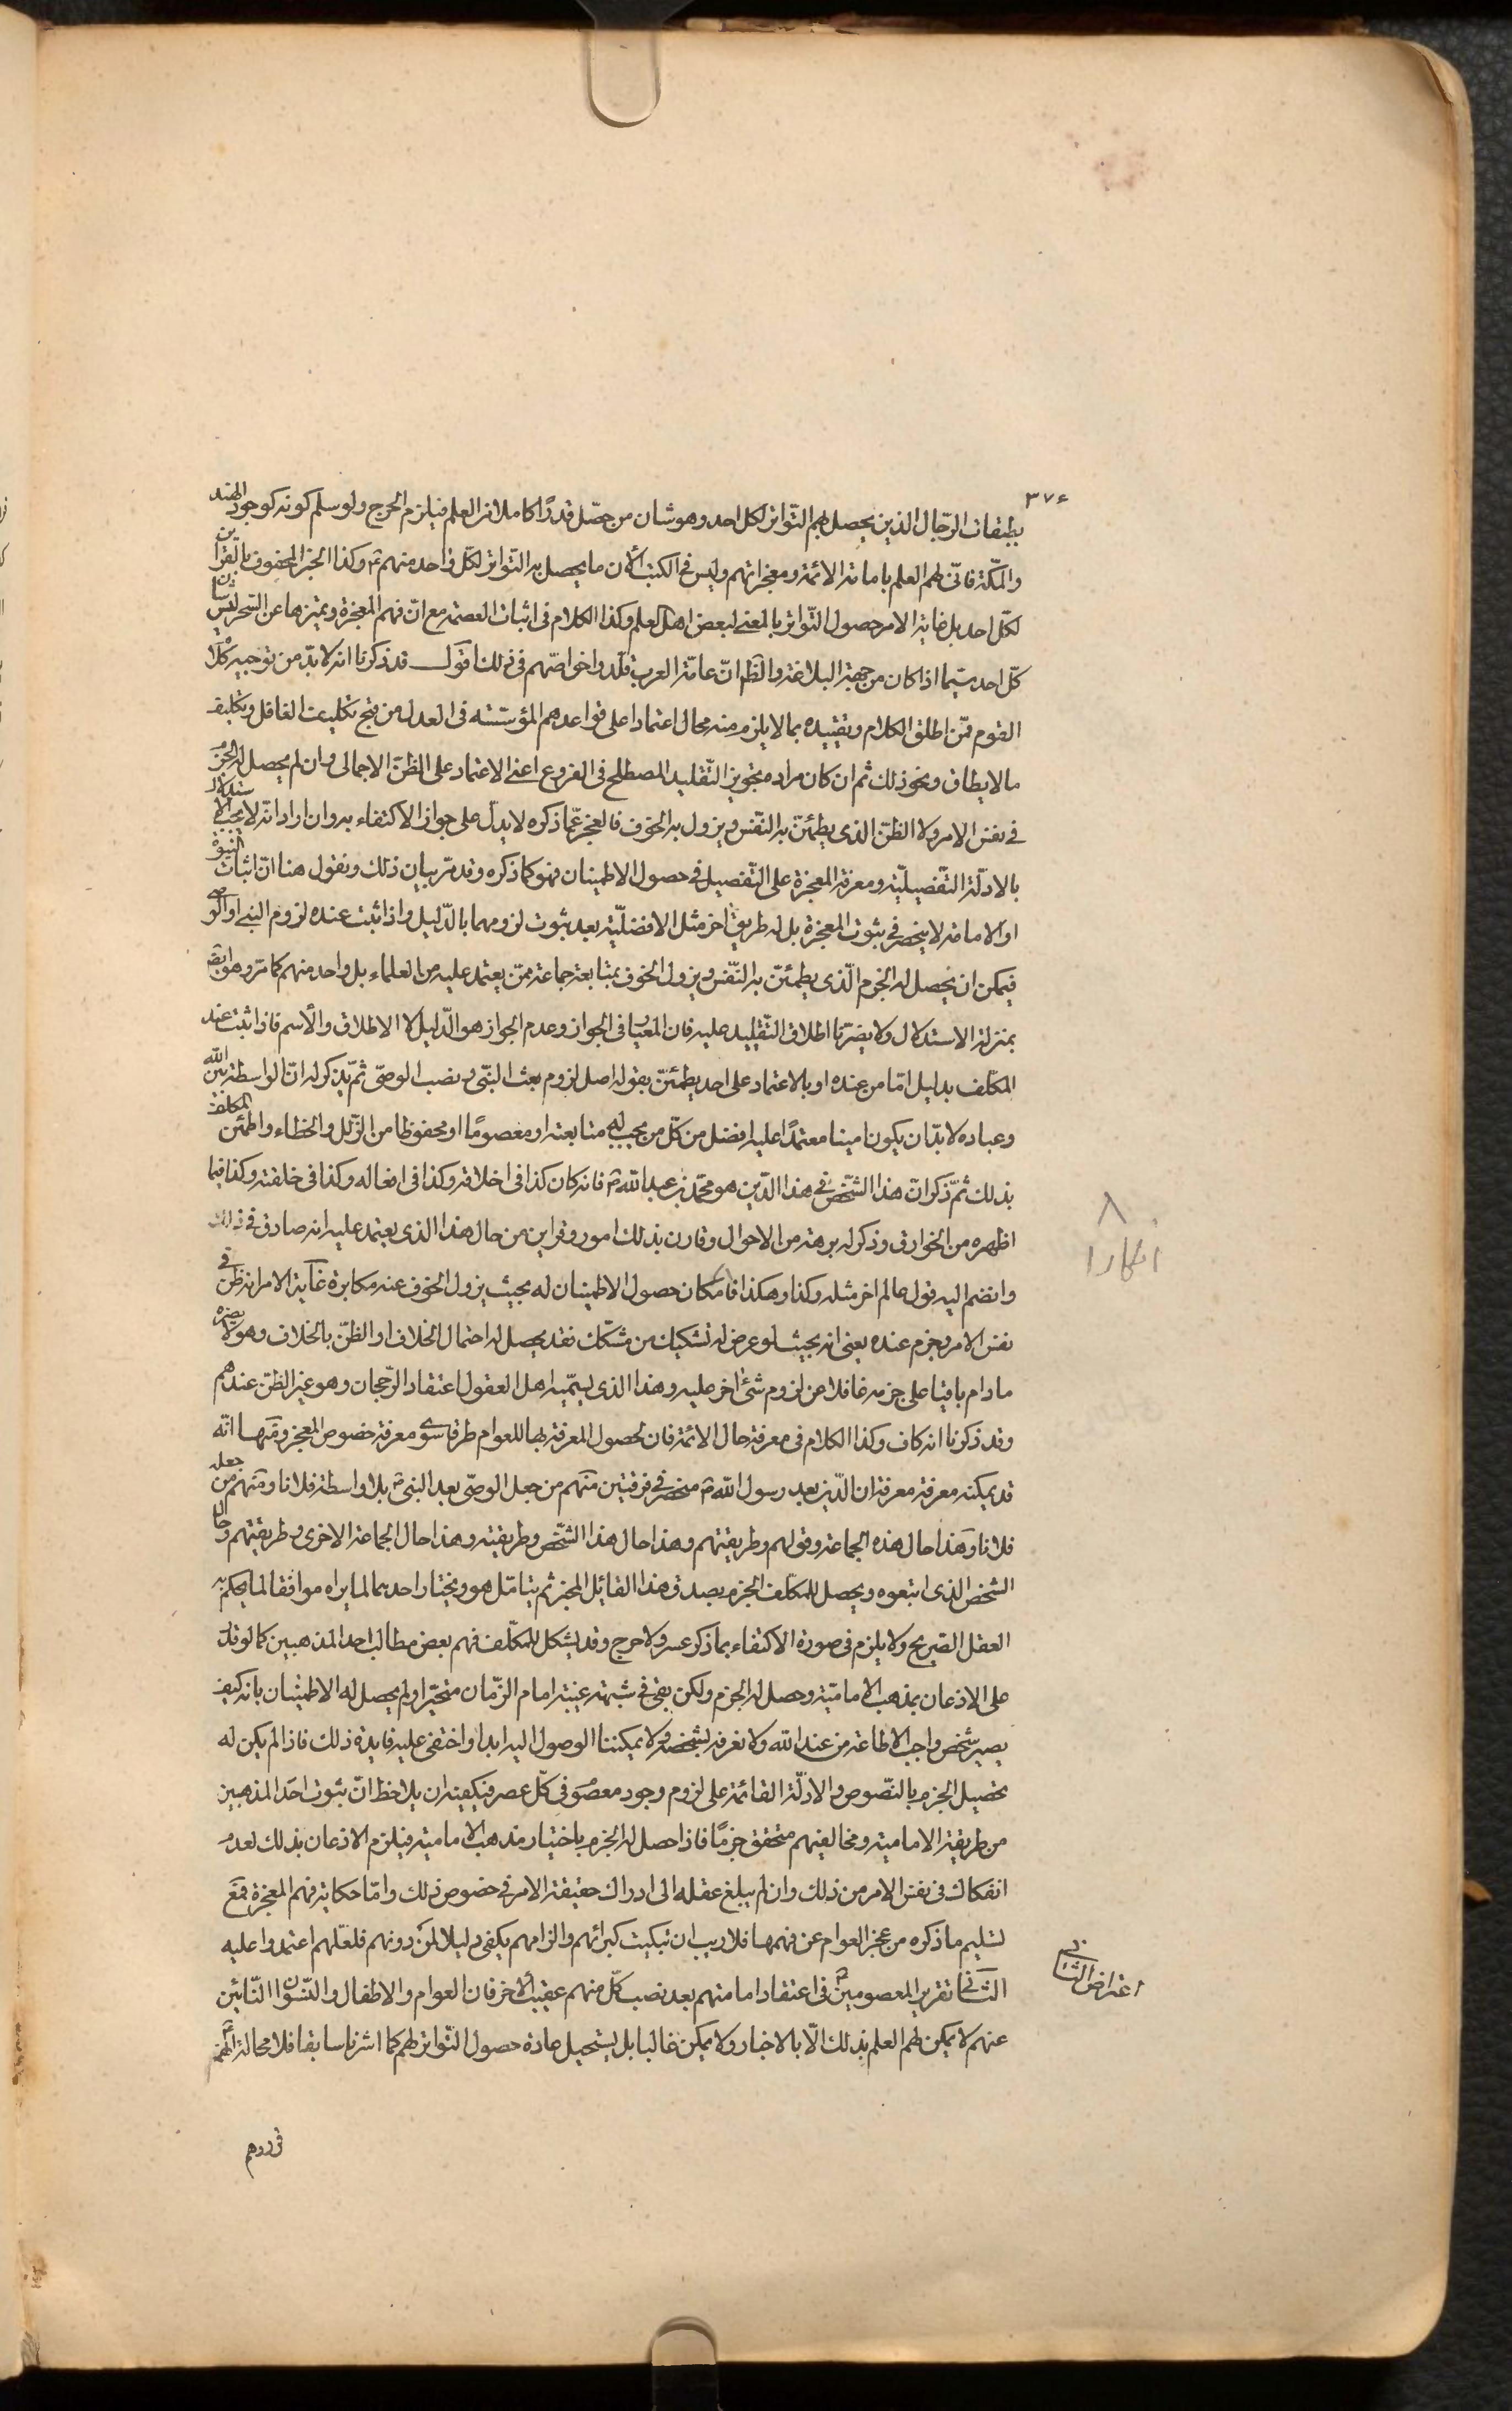 ٣٧٤
بطبقات الرّجال الذين يحصل لهم التّواتر لكل احد وهو شان من حصّل قدرًا كاملا من العلم فيلزم الحرج ولو سلم كونه كوجود الهند
والمكّة فانّى لهم العلم بامامة الائمة ومعجزاتهم وليس فى الكتب الآن ما يحصل به التواتر لكلّ واحد منهم ع وكذا الخبر المحفوف بالقراين
لكلّ احد بل غاية الامر حصول التّواتر بالمعنى لبعض اهل العلم وكذا الكلام فى اثبات العصمة مع انّ فهم المعجزة وتميزها عن السّحر ليس شان
كلّ احد سيّما اذا كان من جهة البلاغة والظ انّ عامّة العرب قلّدوا خواصّهم فى ذلك اقول قد ذكرنا انه لا بدّ من توجيه كلام
القوم ممّن اطلق الكلام وتقييده بما لا يلزم منه محال اعتمادا على قواعدهم المؤسّسة فى العدل من قبح تكليف الغافل وتكليف
ما لا يطاق ونحو ذلك ثم ان كان مراده تجويز التّقليد المصطلح فى الفروع اعنى الاعتماد على الظنّ الاجمالى وان لم يحصل له الجزم
فى نفس الامر ولا الظنّ الذى يطمئنّ به النّفس ويزول به الخوف فالعجز عمّا ذكره لا يدلّ على جواز الاكتفاء به وان اراد انّه لا يجب الاستدلال
بالادلّة التّفصيليّة ومعرفة المعجزة على التّفصيل فى حصول الاطمينان فهو كما ذكره وقد مرّ بيان ذلك ونقول هنا انّ اثبات النبوة
او الامامة لا ينحصر فى ثبوت المعجزة بل له طريق اخر مثل الافضليّة بعد ثبوت لزومهما بالدّليل واذا ثبت عنده لزوم النبى او الوصى
فيمكن ان يحصل له الجزم الّذى يطمئنّ به النّفس ويزول الخوف بمتابعة جماعة ممّن يعتمد عليه من العلماء بل واحد منهم كما مرّ وهو ايضا
بمنزلة الاستدلال ولا يضرّنا اطلاق التّقليد عليه فان المعيار فى الجواز وعدم الجواز هو الدّليل لا الاطلاق والاسم فاذا ثبت عند
المكلّف بدليل امّا من عنده او بالاعتماد على احد يطمئنّ بقوله اصل لزوم بعث النّبى و نصب الوصىّ ثمّ يذكر له انّ الواسطة بين الله
وعباده لا بدّ ان يكون امينا معتمدًا عليه افضل من كلّ من يجب له متابعته او معصومًا او محفوظا من الزّلل والخطاء واطمئن المكلف
بذلك ثمّ ذكر انّ هذا الشّخص فى هذا الدّين هو محمّد بن عبد الله ص فانه كان كذا فى اخلاقه وكذا فى افعاله وكذا فى خلقته وكذا فيما
اظهره من الخوارق وذكر له برهة من الاحوال وقارن بذلك امور وقراين من حال هذا الذى يعتمد عليه انه صادق فى ذلك
وانضم اليه قول عالم اخر مثله وكذا وهكذا فامكان حصول الاطمينان له بحيث يزول الخوف عنه مكابرة غاية الامر انه ظن فى
نفس الامر وجزم عنده يعنى انه بحيث لو عرض له تشكيك من مشكّك فقد يحصل له احتمال الخلاف او الظنّ بالخلاف وهو لا يضره
ما دام باقيا على جزمه غافلا عن لزوم شئ اخر عليه وهذا الذى يسمّيه اهل العقول اعتقاد الرّجحان وهو غير الظنّ عندهم
وقد ذكرنا انه كاف وكذا الكلام فى معرفة حال الائمة فان لحصول المعرفة بها للعوام طرقا سوى معرفة خصوص المعجز ومنها انّه
قد يمكنه معرفة معرفة ان الدّين بعد رسول الله ص منحصر فى فرقتين منهم من جعل الوصىّ بعد النبى ص بلا واسطة فلانا ومنهم من جعله
فلانا وهذا حال هذه الجماعة وقولهم وطريقتهم وهذا حال هذا الشّخص وطريقته وهذا حال الجماعة الاخرى وطريقتهم وحال
الشخص الذى اتبعوه ويحصل للمكلّف الجزم بصدق هذا القائل المخبر ثم يتامّل هو ويختار احدهما لما يراه موافقا لما يحكم به
العقل الصّريح ولا يلزم فى صورة الاكتفاء بما ذكر عسر ولا حرج وقد يشكل للمكلّف فهم بعض مطالب احد المذهبين كما لو قدر
على الاذعان بمذهب الاماميّة وحصل له الجزم ولكن بقى فى شبهة غيبة امام الزّمان متحيّرا ولم يحصل له الاطمينان بانه كيف
يصير شخص واجب الاطاعة من عند الله ولا نعرفه بشخصه ولا يمكننا الوصول اليه ابدا واختفى عليه فايدة ذلك فاذا لم يكن له
تحصيل الجزم بالنّصوص والادلّة القائمة على لزوم وجود معصوم فى كلّ عصر فيكفيه ان يلاحظ انّ ثبوت احد المذهبين
من طريقة الامامية ومخالفيهم متحقق جزمًا فاذا حصل له الجزم باختيار مذهب الامامية فيلزم الاذعان بذلك لعدم
انفكاك فى نفس الامر من ذلك وان لم يبلغ عقله الى ادراك حقيقة الامر فى خصوص ذلك وامّا حكاية فهم المعجزة فمع
تسليم ما ذكره من عجز العوام عن فهمها فلا ريب ان تبكيت كبرائهم والزامهم يكفى دليلا لمن دونهم فلعلّهم اعتمدوا عليه
الثانى تقرير المعصومين ع فى اعتقاد امامتهم بعد نصب كلّ منهم عقيب الاخر فان العوام والاطفال والنّسوان النّائين
عنهم لا يمكن لهم العلم بذلك الّا بالاخبار ولا يمكن غالبا بل يستحيل عادة حصول التّواتر لهم كما اشرنا سابقا فلا محالة انهم
فى ردهم
٨
انكارا
اعتراض الثانى